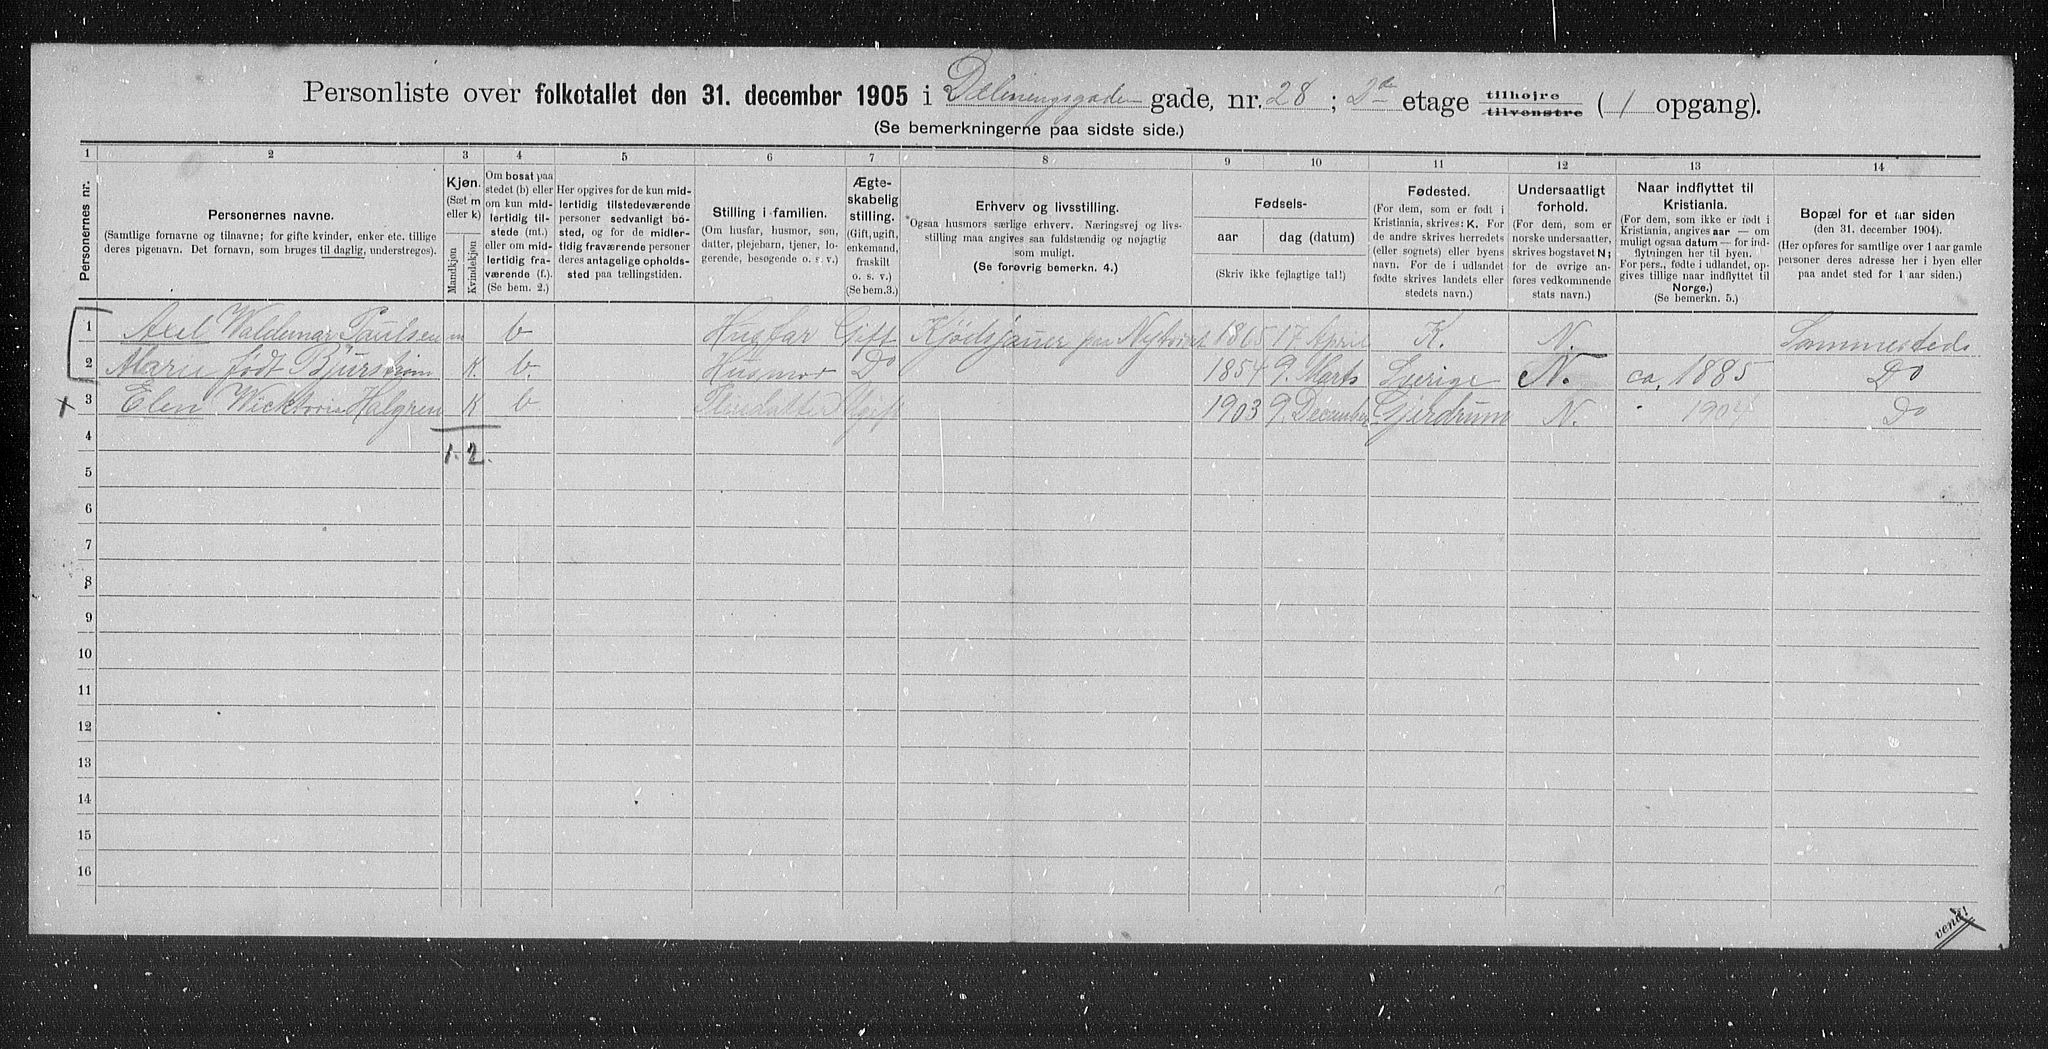 Personliste over folketallet den 31. december 1905 i Dælenengsgaden gade, nr. 28 ; 2den etage tilhøjre tilvenstre ( 1 opgang).
(Se bemerkningerne paa sidste side.)
1 2 3 4 5 6 7 8 9 10 11 12 13 14
Personernes nr.
Personernes navne.
(Samtlige fornavne og tilnavne; for gifte kvinder, enker etc. tillige deres pigenavn. Det fornavn, som bruges til daglig, understreges).
Kjøn.
(Sæt m eller k)
Mandkjøn
Kvindekjøn
Om bosat paa stedet (b) eller om kun midlertidig tilstede (mt.) eller om midlertidig fraværende (f.)
(Se bem. 2.)
Her opgives for de kun midlertidig tilstedeværende personer sedvanligt bosted, og for de midlertidig fraværende personer deres antagelige opholdssted paa tællingstiden.
Stilling i familien.
(Om husfar, husmor, søn, datter, plejebarn, tjener, logerende, besøgende o. s. v.)
Ægteskabelig stilling.
(Gift, ugift, enkemand, fraskilt o. s. v.)
(Se bem. 3.)
Erhverv og livsstilling.
Ogsaa husmors særlige erhverv. Næringsvej og livsstilling maa angives saa fuldstændig og nøjagtig som muligt.
(Se forøvrig bemerkn. 4.)
Fødsels-
aar dag (datum)
(Skriv ikke fejlagtige tal!)
Fødested.
(For dem, som er født i Kristiania, skrives: K. For de andre skrives herredets (eller sognets) eller byens navn. For de i udlandet fødte skrives landets eller stedets navn.)
Undersaatligt forhold.
(For dem, som er norske undersaatter, skrives bogstavet N; for de øvrige anføres vedkommende stats navn.)
Naar indflyttet til Kristiania.
(For dem, som ikke er født i Kristiania, angives aar — om muligt ogsaa datum — for indflytningen her til byen. For pers., fødte i udlandet, opgives tillige naar indflyttet til Norge.)
(Se bemerkn. 5.)
Bopæl for et aar siden
(den 31. december 1904).
(Her opføres for samtlige over 1 aar gamle personer deres adresse her i byen eller paa andet sted for 1 aar siden.)
1 Axel Waldemar Paulsen m b Husfar Gift Kjödsjauer paa Nytorvet 1865 17 April K. N. Sammesteds
2 Marie født Bjurström K. b. Husmor Do 1854 9. Marts Sverige N. ca. 1885 Do
3 Elen Wicktoria Halgren K b Pleiedatter Ugift 1903 9. December Gjerdrum N. 1904 Do
4
1. 2.
5
6
7
8
9
10
11
12
13
14
15
16
vend!